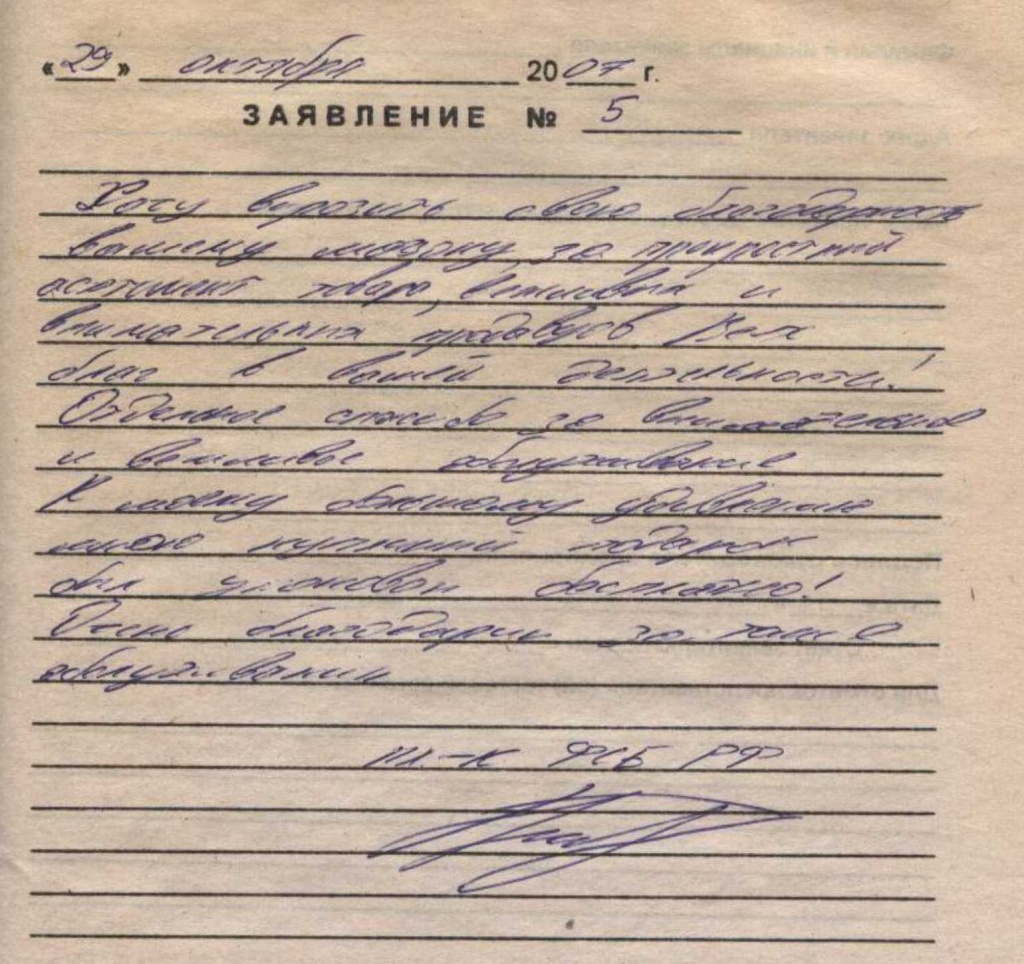 «29» октября 2007 г.
ЗАЯВЛЕНИЕ № 5
Хочу выразить свою благодарность
вашему магазину за прекрастный
асортимент товара, вежливых и
внимательных продавцов. Всех
благ в вашей деятельности!
Отдельное спасибо за внимательное
и вежливое обслуживание
К моему большому удивлению
мною купленный подарок
был упакован бесплатно!
Очень благодарны за такое
обслуживание
п.п-к ФСБ РФ